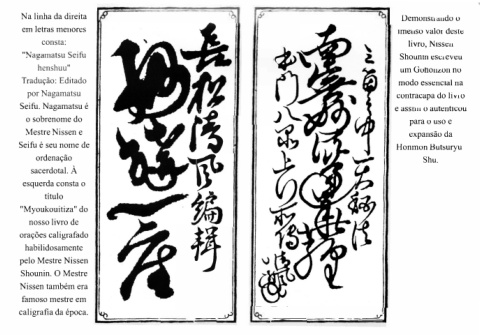 Na linha da direita
em letras menores
consta:
"Nagamatsu Seifu
henshuu"
Tradução: Editado
por Nagamatsu
Seifu. Nagamatsu é
o sobrenome do
Mestre Nissen e
Seifu é seu nome de
ordenação
sacerdotal. À
esquerda consta o
título
"Myoukouitiza" do
nosso livro de
orações caligrafado
habilidosamente
pelo Mestre Nissen
Shounin. O Mestre
Nissen também era
famoso mestre em
caligrafia da época.
長松清風編輯
妙講一座
三箇之中一大秘法
南無妙法蓮華経
本門八品上行所傳
清風
Demonstrando o
imenso valor deste
livro, Nissen
Shounin escreveu
um Gohonzon no
modo essencial na
contracapa do livro
e assim o autenticou
para o uso e
expansão da
Honmon Butsuryu
Shu.